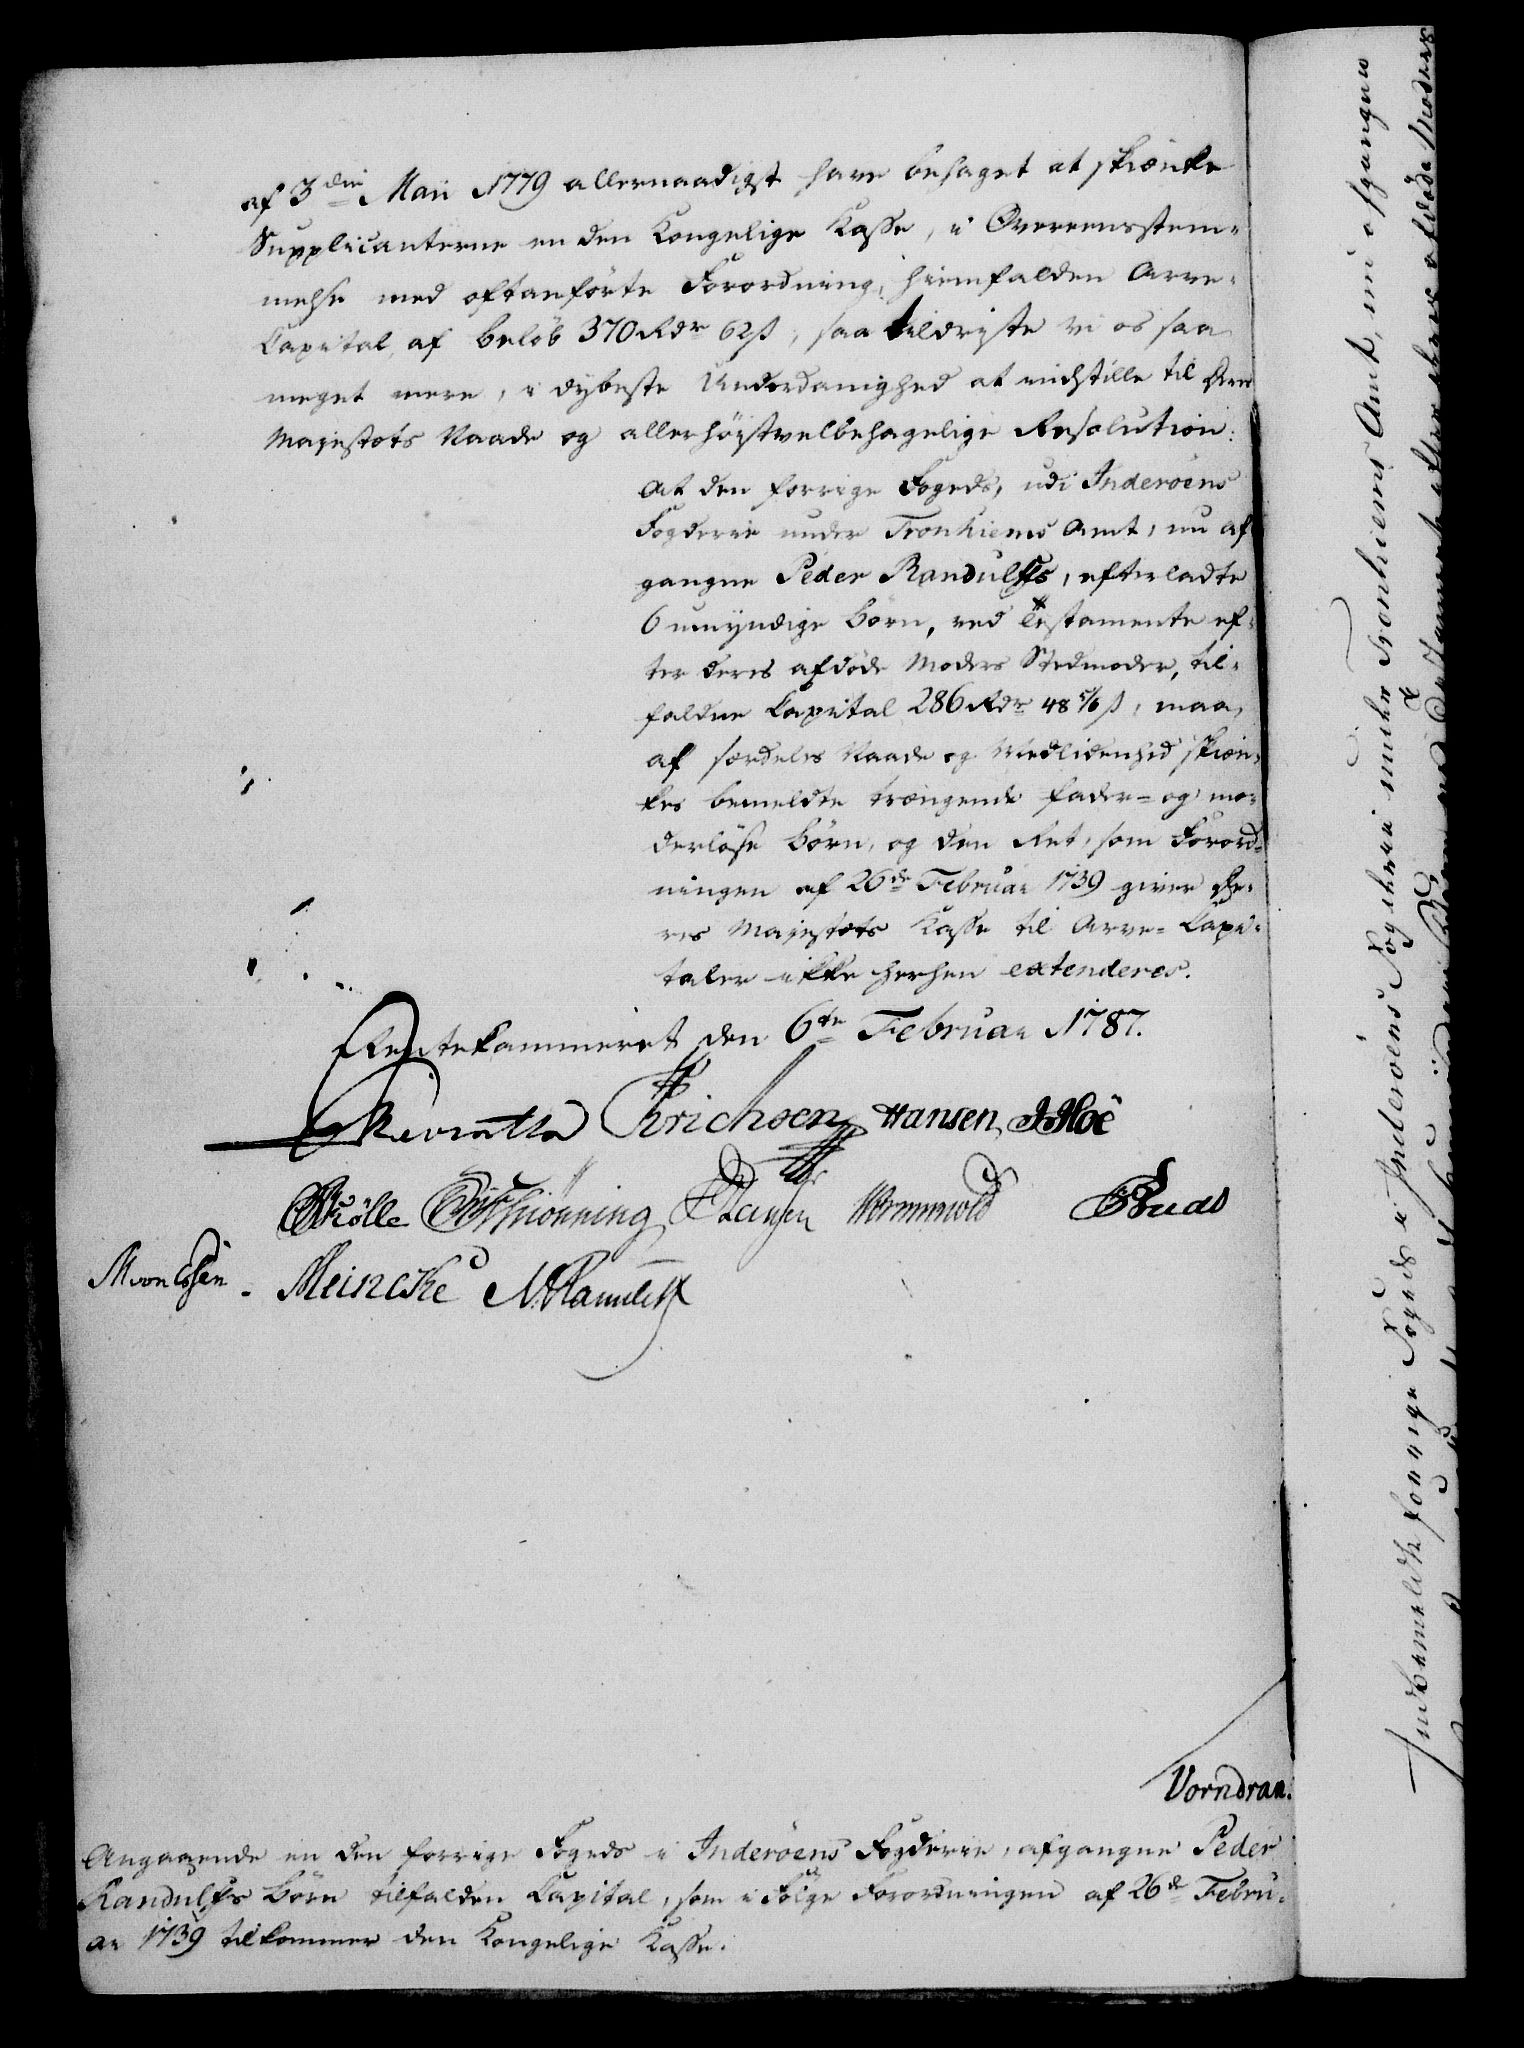 af 3die Maii 1779 allernaadigst have behaget at skiænke
Supplicanterne en den Kongelige Kasse, i Overeensstem-
melse med oftanførte Forordning, hiemfalden Arve-
Capital, af beløb 370 Rdr 62 ß, saa tildriste vi os saa
meget mere, i dybeste Underdanighed at indstille til Deres
Majestæts Naade og allerhøistvelbehagelige Resolution:
At den forrige Fogeds, udi Inderöens
Fogderie under Tronhiems Amt, nu af-
gangne Peder Randulffs, efterladte
6 umyndige Børn, ved Testamente ef-
ter deres afdøde Moders Stedmoder, til-
faldne Capital 286 Rdr 48 5/6 ß, maa,
af særdeles Naade og Medlidenhed skiæn-
kes bemeldte trængende fader- og mo-
derløse Børn, og den Ret, som Forord-
ningen af 26de Februar 1739 giver De-
res Majestæts Kasse til Arve-Capi-
taler ikke herhen extenderes.
Rentekammeret den 6te Februar 1787.
Reventlow Erichsen Hansen
Schiönning Wormskiold
M von Essen Meincke
Vorndran.
Angaaende en den forrige Fogeds i Inderöens Fogderie, afgangne Peder
Randulffs Børn tilfalden Capital, som i Følge Forordningen af 26de Febru-
ar 1739 tilkommer den Kongelige Kasse.
Indbemeldte forrige Fogeds i Inderöens Fogderie under Tronhiems Amt, nu afgangne